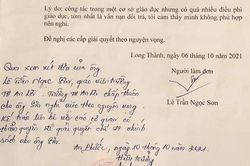 Lý do: công tác trong một cơ sở giáo dục nhưng có quá nhiều điều phi
giáo dục, tồn nhất là vấn nạn dối trá, tôi cảm thấy mình không phù hợp
nên nghỉ.
Đề nghị các cấp giải quyết theo nguyện vọng.
Long Thành, ngày 06 tháng 10 năm 2021
Người làm đơn
Lê Trần Ngọc Sơn
Qua xem xét đơn của ông
Lê Trần Ngọc Sơn, giáo viên trường
chấp thuận
cho ông Sơn nghỉ việc theo nguyện vọng.
Kế toán liên hệ với
thẩm quyền để giải quyết chế độ chính
sách cho ông Sơn.
An Phước, ngày 10 tháng 10 năm 2021
Hiệu trưởng